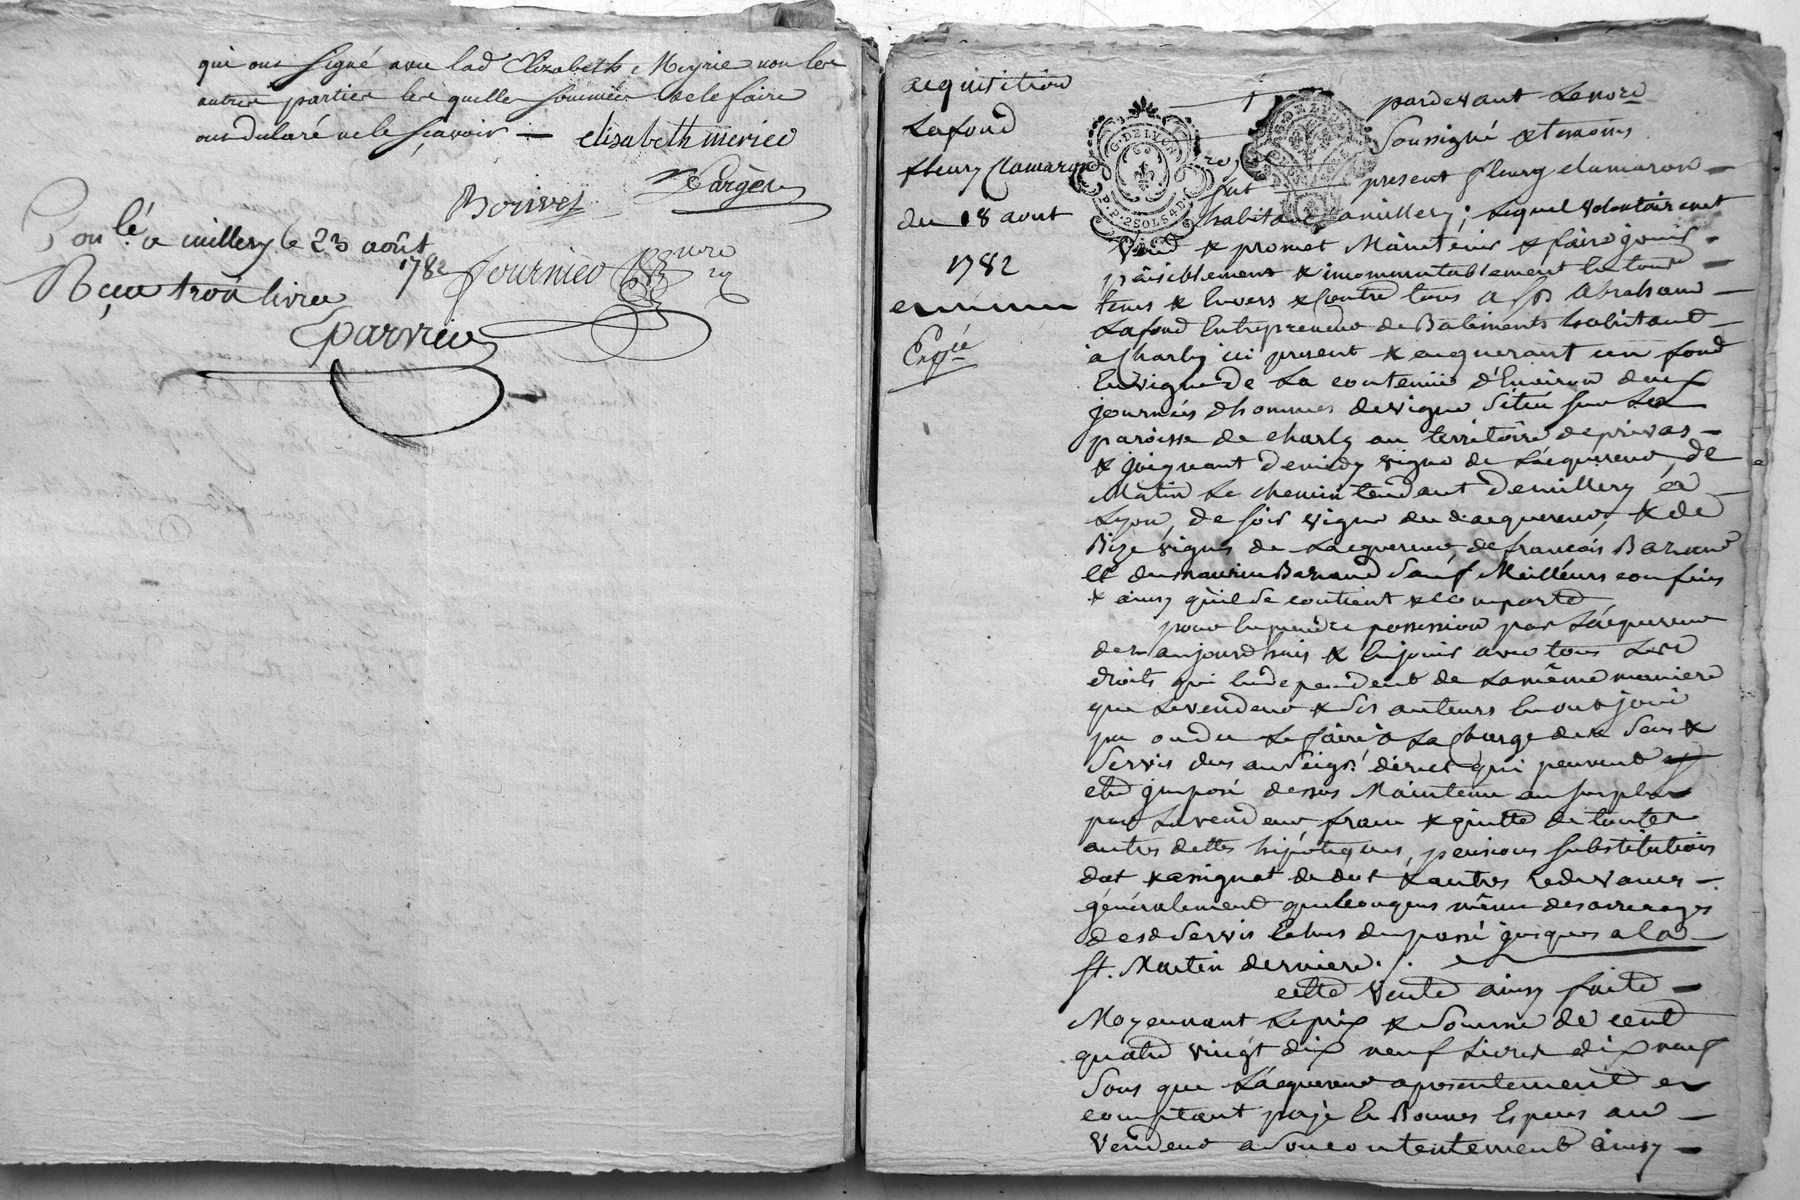 qui ont signé avec lad Elizabeth Meyrie non les
autres parties les quelles sommées de le faire
ont declaré ne le sçavoir — elisabeth meriee
Bouvet
Con.lé a millery le 23 août
1782
Reçu trois livres
fournier
parvieu
acquisition
Lafond
fleury Clamaron
du 18 aout
1782
Exp.ié
G. DE LYON
P.P. 2 SOLS 4 D.
pardevant Le no.re
Soussigné & temoins
fut present fleury clamaron —
habitant a millery ; Lequel volontairement
Vend & promet Maintenir & faire jouir —
paisiblement & incommutablement En tous —
tems & Envers & Contre tous a Sr Abraham —
Lafond Entrepreneur de Batiments habitant —
a Charly ici present & acquerant un fond
En vigne de La contenüe d'Environ deux
journées d'hommes de vigne Située sur La
paroisse de Charly au territoire de privas —
& joignant de midy vigne de L'acquereur, de
Matin Le chemin tendant de millery a
Lyon, de soir vigne du d. acquereur, & de
Bize vigne de L'acquereur, de francois
et du Sauf Meilleurs confins
& ainsy qu'il Se contient & Comporte
pour En prendre possession par L'acquereur
des aujourd'huis & En jouir avec tous Les
droits qui En dependent de La même maniere
que Le vendeur & Ses auteurs En ont joui
pu ou du Le faire a La Charge des Sens &
Servis dus au Seig.r direct qui peuvent
etre imposé dessus Maintenu au surplus
par Le vendeur franc & quitte de toutes
autres dettes hipoteques, pensions substitutions
dot & assignat de dot & autres redevances —
généralement quelconques même des arrerages
desd Servis Echus du passé jusques a la
St. Martin derniere ./.
cette Vente ainsy faite —
Moyennant Le prix & Somme de cent
quatre vingt dix neuf Livres dix neuf
Sous que L'acquereur a presentement et
comptant payé En Bonnes Especes au —
Vendeur a Son contentement ainsy —